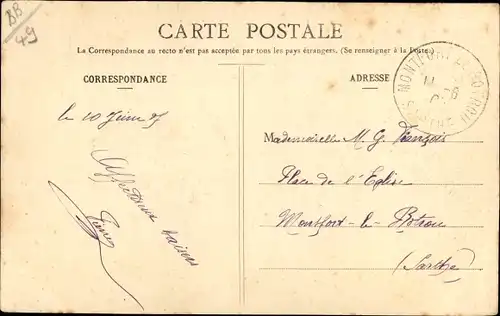 BB
49
CARTE POSTALE
La Correspondance au recto n'est pas acceptée par tous les pays étrangers. (Se renseigner à la Poste.)
CORRESPONDANCE
ADRESSE
MONTFORT-LE-ROTROU
SARTHE
le 10
Affectueux baisers
Mademoiselle M. G. François
Place de l'Eglise
Montfort-le-Rotrou
(Sarthe)